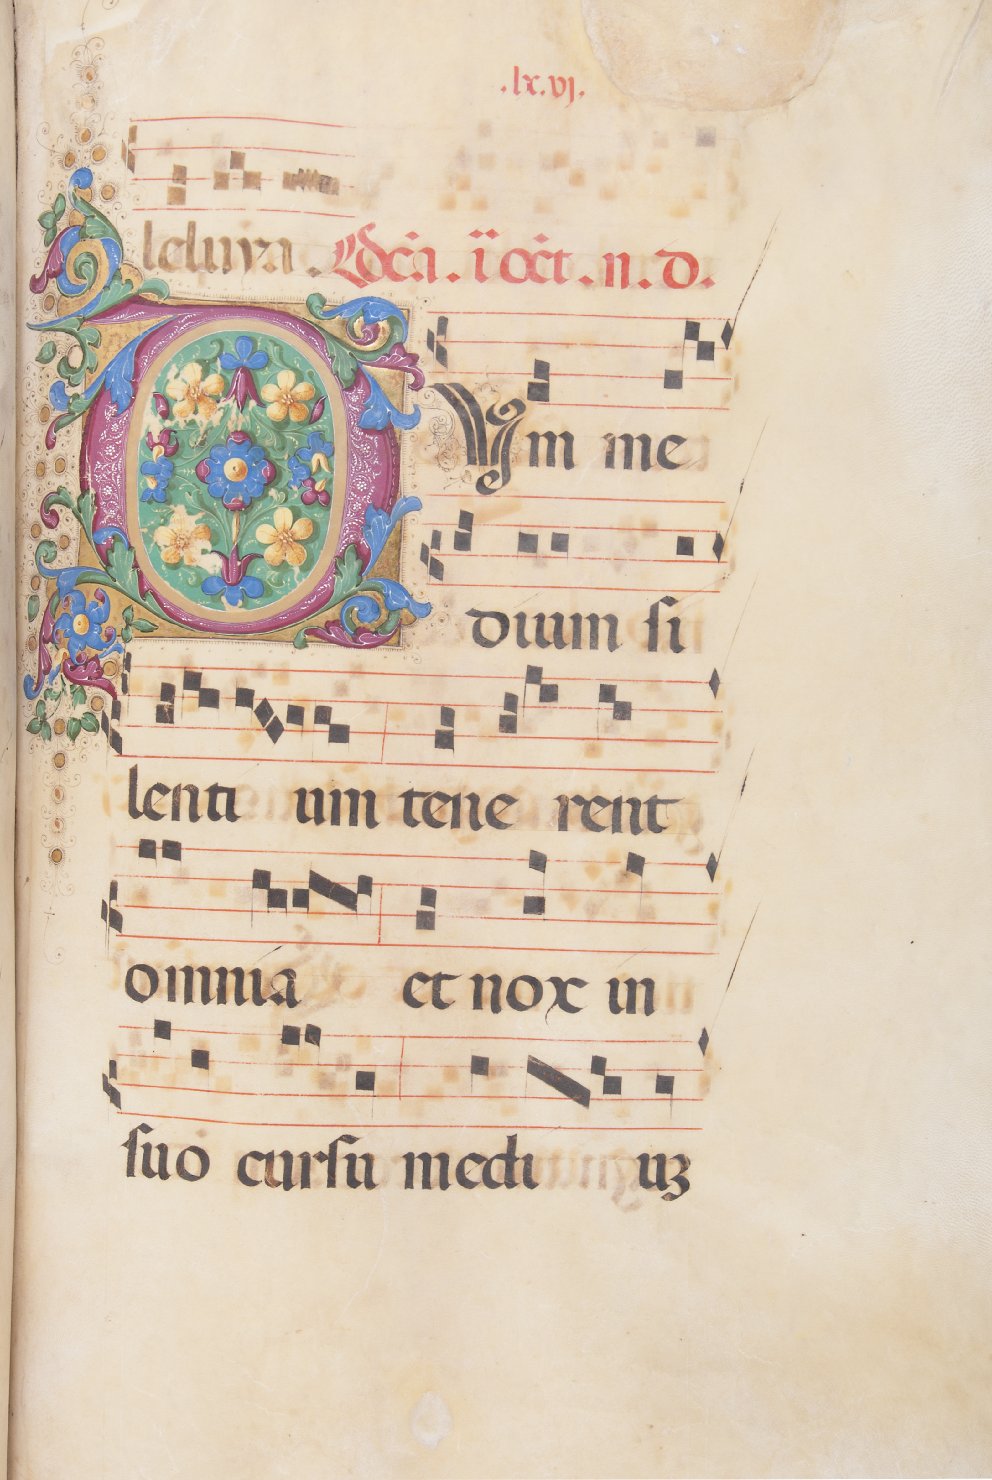 .lx.vj.
leluya. Dn̄cā. ī oc̄t. n. d.
DVm me
dium si
lenti um tene rent
omnia et nox in
suo cursu medi uꝫ